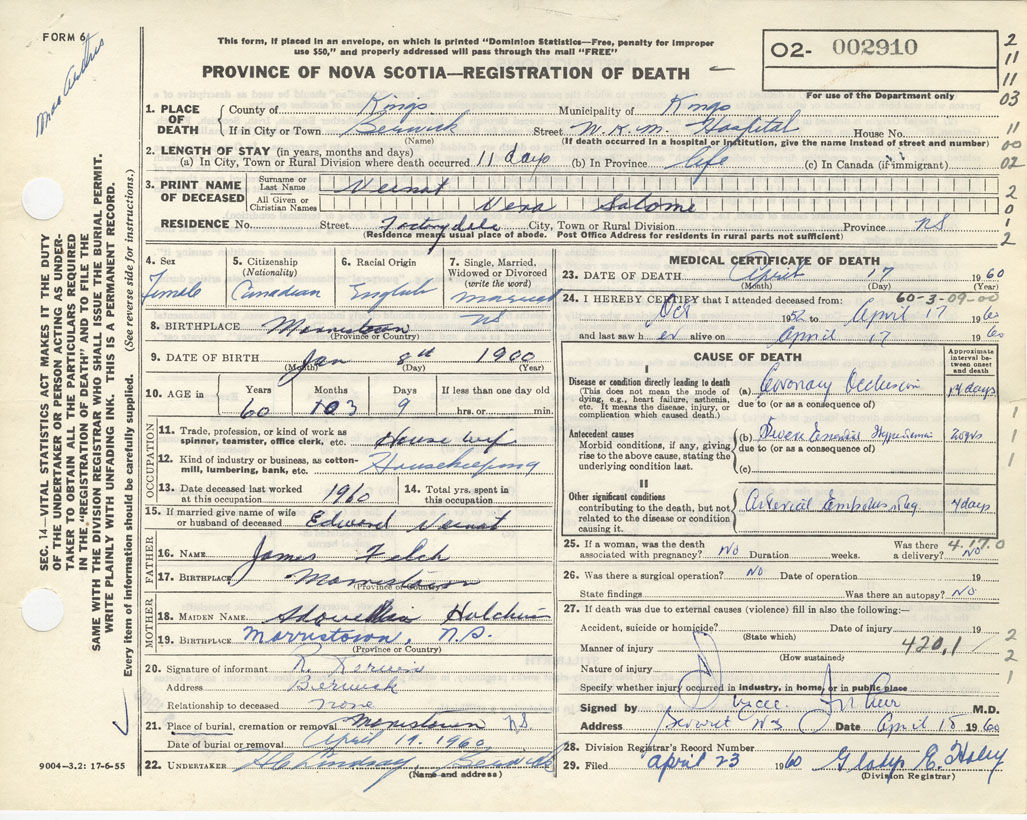 FORM 6
This form, if placed in an envelope, on which is printed "Dominion Statistics—Free, penalty for improper
use $50," and properly addressed will pass through the mail "FREE"
PROVINCE OF NOVA SCOTIA—REGISTRATION OF DEATH
O2- 002910
For use of the Department only
2
11
11
03
11
00
02
2
0
1
2
SEC. 14—VITAL STATISTICS ACT MAKES IT THE DUTY
OF THE UNDERTAKER OR PERSON ACTING AS UNDER-
TAKER TO OBTAIN ALL THE PARTICULARS REQUIRED
IN THE "REGISTRATION OF DEATH" AND TO FILE THE
SAME WITH THE DIVISION REGISTRAR WHO SHALL ISSUE THE BURIAL PERMIT.
WRITE PLAINLY WITH UNFADING INK. THIS IS A PERMANENT RECORD.
Every item of information should be carefully supplied. (See reverse side for instructions.)
1. PLACE OF DEATH County of Kings Municipality of Kings
If in City or Town Berwick Street W.K.M. Hospital House No.
(Name) (If death occurred in a hospital or institution, give the name instead of street and number)
2. LENGTH OF STAY (in years, months and days)
(a) In City, Town or Rural Division where death occurred 11 days (b) In Province life (c) In Canada (if immigrant)
3. PRINT NAME OF DECEASED Surname or Last Name Veinot
All Given or Christian Names Vera Salome
RESIDENCE No. Street Factorydale City, Town or Rural Division Province NS
(Residence means usual place of abode. Post Office Address for residents in rural parts not sufficient)
4. Sex Female
5. Citizenship (Nationality) Canadian
6. Racial Origin English
7. Single, Married, Widowed or Divorced (write the word) married
8. BIRTHPLACE Morristown NS
(Province or Country)
9. DATE OF BIRTH Jan 8th 1900
(Month) (Day) (Year)
10. AGE in Years Months Days If less than one day old
60 3 9 hrs. or min.
OCCUPATION
11. Trade, profession, or kind of work as spinner, teamster, office clerk, etc. House wif
12. Kind of industry or business, as cotton-mill, lumbering, bank, etc. Housekeeping
13. Date deceased last worked at this occupation 1960
14. Total yrs. spent in this occupation
15. If married give name of wife or husband of deceased Edward Veinot
FATHER
16. NAME James Felch
17. BIRTHPLACE Morristown
(Province or Country)
MOTHER
18. MAIDEN NAME
19. BIRTHPLACE Morristown, N.S.
(Province or Country)
20. Signature of informant R.
Address Berwick
Relationship to deceased none
21. Place of burial, cremation or removal Morristown NS
Date of burial or removal April 19, 1960
22. UNDERTAKER Lindsay Berwick
(Name and address)
9004-3.2: 17-6-55
MEDICAL CERTIFICATE OF DEATH
23. DATE OF DEATH April 17 1960
(Month) (Day) (Year)
60-3-09-00
24. I HEREBY CERTIFY that I attended deceased from:
Oct 1952 to April 17 1960
and last saw h er alive on April 17 1960
CAUSE OF DEATH
Approximate interval between onset and death
I
Disease or condition directly leading to death
(This does not mean the mode of dying, e.g., heart failure, asthenia, etc. It means the disease, injury, or complication which caused death.)
(a) Coronary Occlusion 14 days
due to (or as a consequence of)
Antecedent causes
Morbid conditions, if any, giving rise to the above cause, stating the underlying condition last.
(b) Essential Hypertension 20 yrs
due to (or as a consequence of)
(c)
II
Other significant conditions
contributing to the death, but not related to the disease or condition causing it.
Arterial Embolus Leg 4 days
1
1
1
25. If a woman, was the death associated with pregnancy? No Duration weeks. Was there a delivery? No
4.17.0
26. Was there a surgical operation? No Date of operation 19
State findings Was there an autopsy? No
27. If death was due to external causes (violence) fill in also the following:—
Accident, suicide or homicide? Date of injury 19
(State which)
Manner of injury 420.1
(How sustained)
Nature of injury
Specify whether injury occurred in industry, in home, or in public place
2
2
1
Signed by M.D.
Address Date April 18 1960
28. Division Registrar's Record Number
29. Filed April 23 1960 Gladys E.
(Division Registrar)